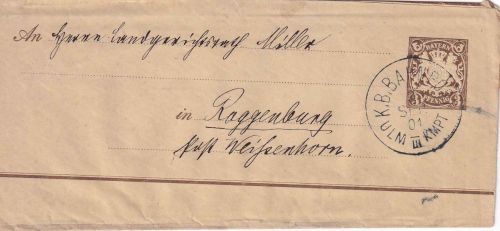 An Herrn Landgerichtsrath Miller
in Roggenburg
Post Weissenhorn.
3 BAYERN 3
3 PFENNIG 3
K.B.BAHN
01
III KMPT